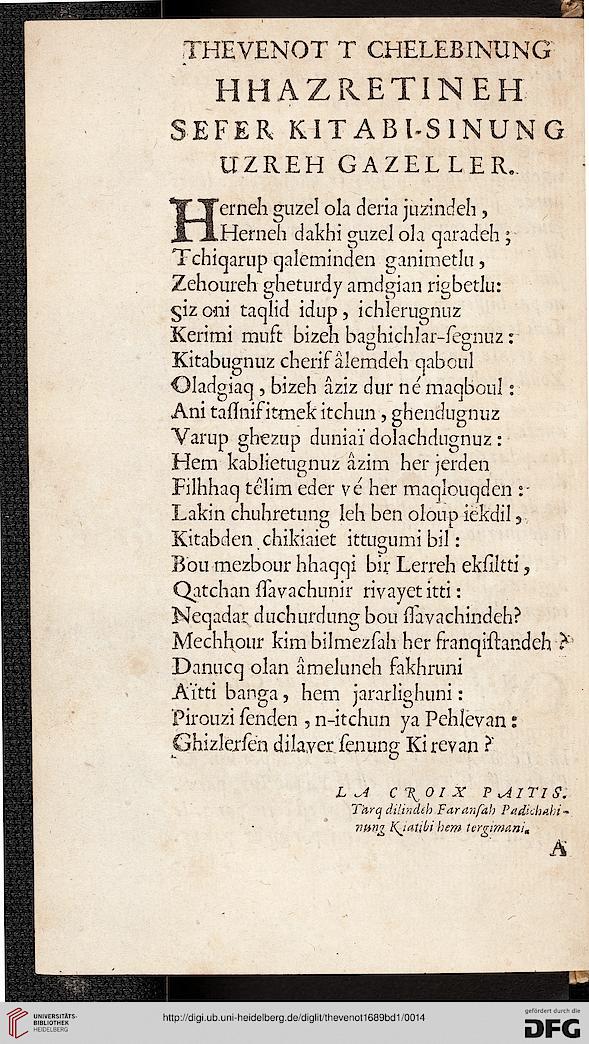 THEVENOT T CHELEBINUNG
HHAZRETINEH
SEFER KITABI-SINUNG
UZREH GAZELLER.
Herneh guzel ola deria juzindeh,
Herneh dakhi guzel ola qaradeh;
Tchiqarup qaleminden ganimetlu,
Zehoureh gheturdy amdgian rigbetlu:
Siz oni taqlid idup, ichlerugnuz
Kerimi muft bizeh baghichlar-ſegnuz:
Kitabugnuz cherif âlemdeh qaboul
Oladgiaq, bizeh âziz dur né maqboul:
Ani taſſnif itmek itchun, ghendugnuz
Varup ghezup duniaï dolachdugnuz:
Hem kablietugnuz âzim her jerden
Filhhaq têlim eder vé her maqlouqden:
Lakin chuhretung leh ben oloup iëkdil,
Kitabden chikiaiet ittugumi bil:
Bou mezbour hhaqqi bir Lerreh ekſiltti,
Qatchan ſſavachunir rivayet itti:
Neqadar duchurdung bou ſſavachindeh?
Mechhour kim bilmezſah her franqiſtandeh?
Danucq olan âmeluneh fakhruni
Aïtti banga, hem jararlighuni:
Pirouzi ſenden, n-itchun ya Pehlevan:
Ghizlerſen dilaver ſenung Ki revan?
LA CROIX PAITIS.
Turq dilindeh Faranſah Padichahi-
nung Kiatibi hem tergimani.
A
UNIVERSITÄTS-
BIBLIOTHEK
HEIDELBERG
http://digi.ub.uni-heidelberg.de/diglit/thevenot1689bd1/0014
gefördert durch die
DFG